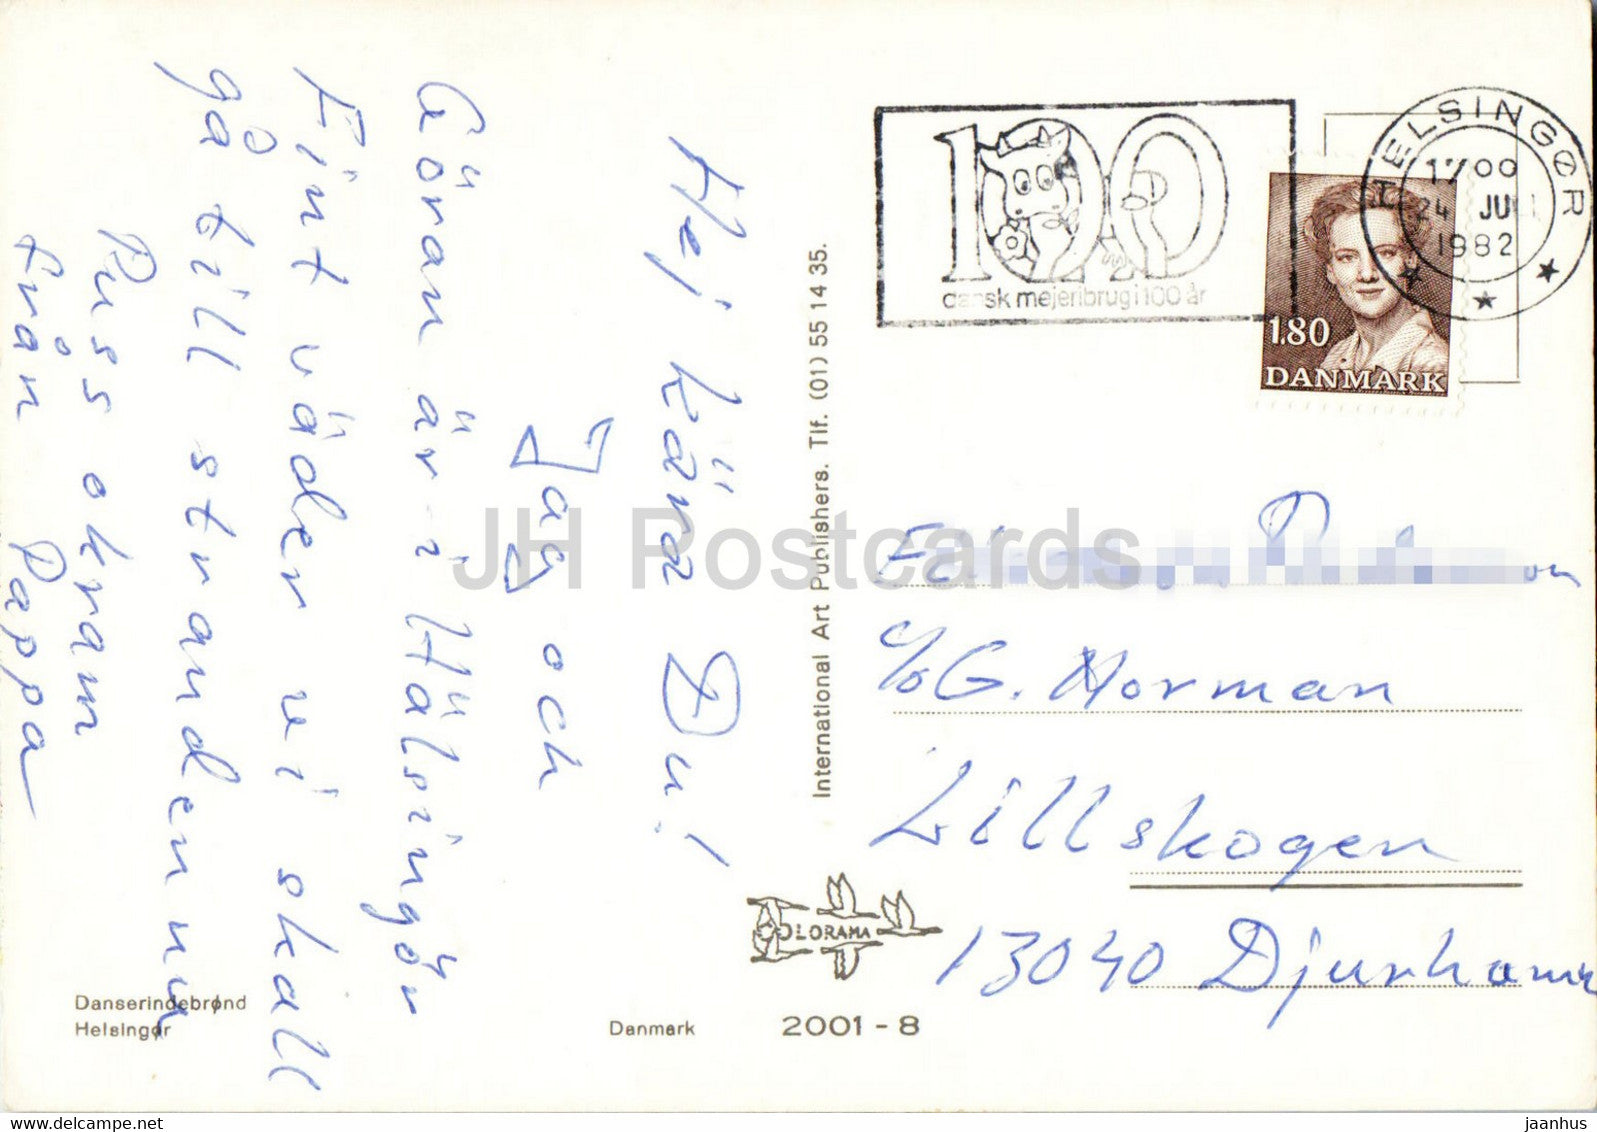 Hej kära Du!
Jag och
Göran är i Hälsingör
Fint väder vi skall
gå till stranden nu
Puss o kram
från Pappa
100
dansk mejeribrug i 100 år
HELSINGØR
17 00
24 JULI
1982
1.80
DANMARK
c/o G. Norman
Lillskogen
13040 Djurhamn
International Art Publishers. Tlf. (01) 55 14 35.
COLORAMA
Danserindebrønd
Helsingør
Danmark
2001 - 8
JH Postcards
www.delcampe.net
jaanhus